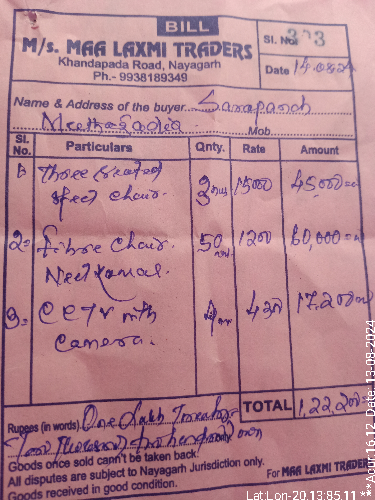 BILL
M/s. MAA LAXMI TRADERS
Khandapada Road, Nayagarh
Ph.- 9938189349
Sl. No. 303
Date 14.08.24
Name & Address of the buyer Sarapanch
Mob
Sl. No. Particulars Qnty. Rate Amount
1- Three Seated Steel Chair. 3 nos 15000 45,000=00
2- Fibre Chair. Neelkamal. 50 nos 1200 60,000=00
3- CCTV with Camera. 4 430 17,200=00
TOTAL 1,22,200
Rupees (in words) One Lakh Twenty
Two Thousand Two hundred only
Goods once sold cann't be taken back.
All disputes are subject to Nayagarh Jurisdiction only.
Goods received in good condition.
For MAA LAXMI TRADERS
Lat:Lon-20.13:85.11
**Apur 16.12 Date: 13-08-2024